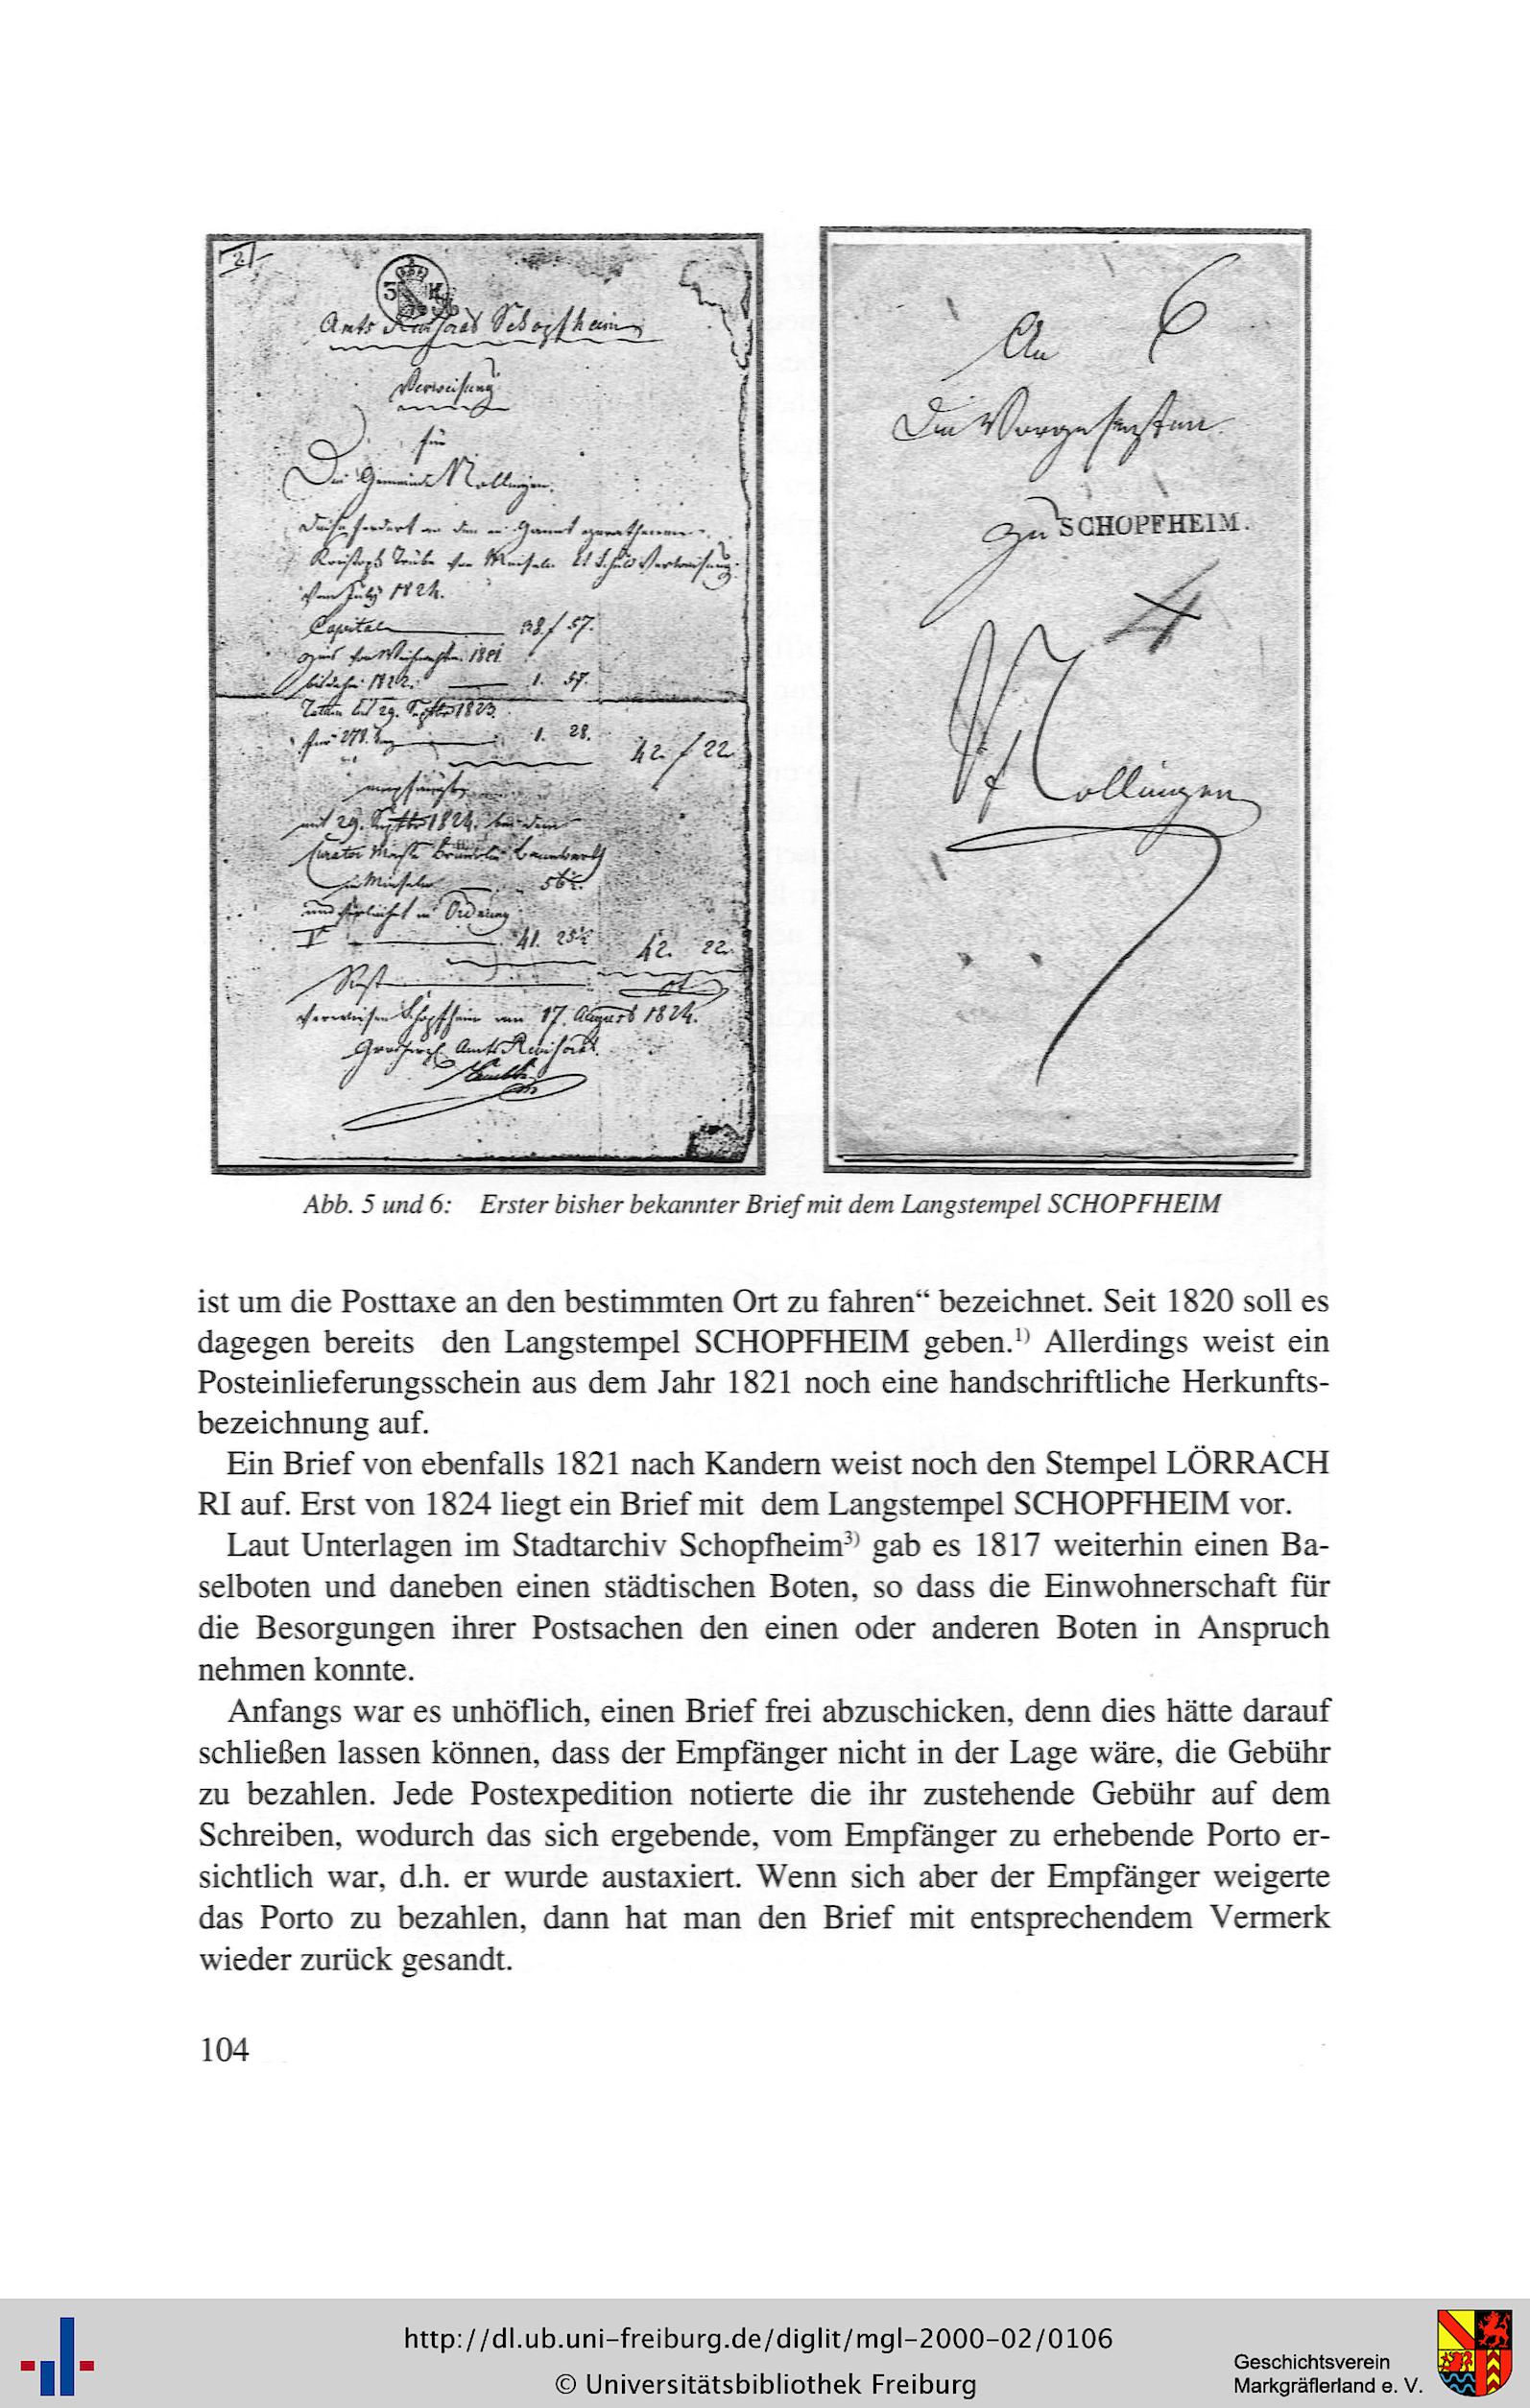 2
3 K
Amts Revisorat Schopfheim
Verweisung
für
Die Gemeinde Nollingen.
vom July 1824.
Capital 38 f 57.
1821
1822. 1. 57.
29. Septbr 1823.
für 278. Tag 1. 28. 42. f 22
empfängt
mit 29. Septbr 1824. bei dem
Curator
in Minseln 56½.
und in Ordnung
V 41. 25½ 42. 22.
Rest
Verwiesen Schopfheim am 17. August 1824.
Amts Revisorat.
An 6
Die Vorgesezten
zu SCHOPFHEIM.
4
Nollingen
Abb. 5 und 6: Erster bisher bekannter Brief mit dem Langstempel SCHOPFHEIM
ist um die Posttaxe an den bestimmten Ort zu fahren“ bezeichnet. Seit 1820 soll es
dagegen bereits den Langstempel SCHOPFHEIM geben.¹⁾ Allerdings weist ein
Posteinlieferungsschein aus dem Jahr 1821 noch eine handschriftliche Herkunfts-
bezeichnung auf.
Ein Brief von ebenfalls 1821 nach Kandern weist noch den Stempel LÖRRACH
RI auf. Erst von 1824 liegt ein Brief mit dem Langstempel SCHOPFHEIM vor.
Laut Unterlagen im Stadtarchiv Schopfheim³⁾ gab es 1817 weiterhin einen Ba-
selboten und daneben einen städtischen Boten, so dass die Einwohnerschaft für
die Besorgungen ihrer Postsachen den einen oder anderen Boten in Anspruch
nehmen konnte.
Anfangs war es unhöflich, einen Brief frei abzuschicken, denn dies hätte darauf
schließen lassen können, dass der Empfänger nicht in der Lage wäre, die Gebühr
zu bezahlen. Jede Postexpedition notierte die ihr zustehende Gebühr auf dem
Schreiben, wodurch das sich ergebende, vom Empfänger zu erhebende Porto er-
sichtlich war, d.h. er wurde austaxiert. Wenn sich aber der Empfänger weigerte
das Porto zu bezahlen, dann hat man den Brief mit entsprechendem Vermerk
wieder zurück gesandt.
104
http://dl.ub.uni-freiburg.de/diglit/mgl-2000-02/0106
© Universitätsbibliothek Freiburg
Geschichtsverein
Markgräflerland e. V.